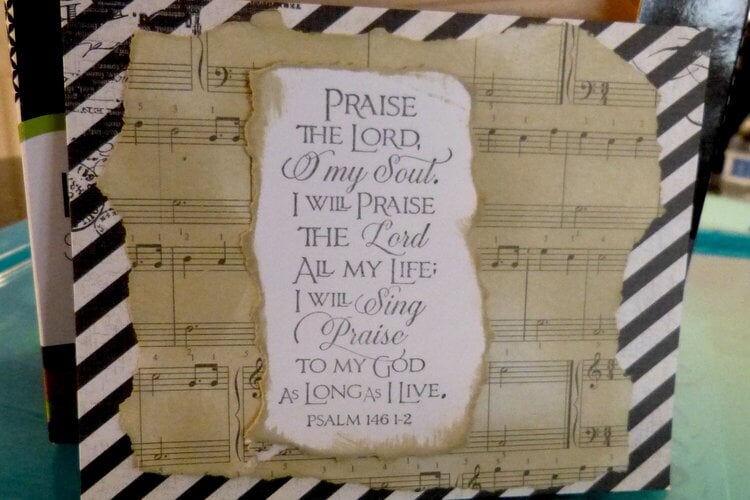 PRAISE
THE LORD,
O my Soul.
I WILL PRAISE
THE Lord
ALL MY LIFE;
I WILL Sing
Praise
TO MY GOD
AS LONG AS I LIVE.
PSALM 146 1-2